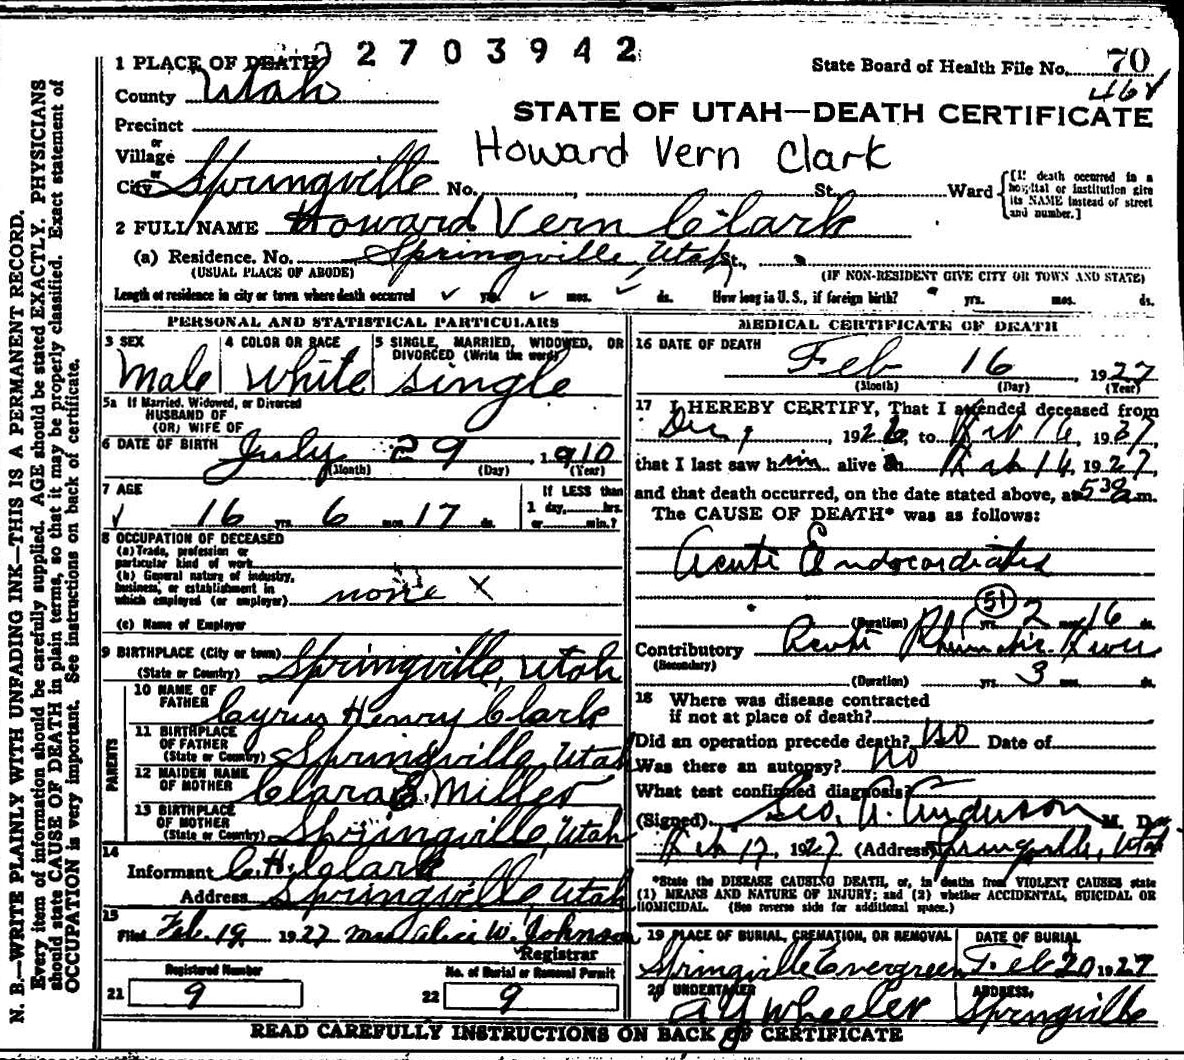 2703942
1 PLACE OF DEATH
State Board of Health File No. 70
468
County Utah
STATE OF UTAH—DEATH CERTIFICATE
Precinct
or
Village
Howard Vern Clark
or
City Springville No. , St. Ward
[If death occurred in a hospital or institution give its NAME instead of street and number.]
2 FULL NAME Howard Vern Clark
(a) Residence. No. Springville, Utah St.,
(USUAL PLACE OF ABODE) (IF NON-RESIDENT GIVE CITY OR TOWN AND STATE)
Length of residence in city or town where death occurred ✓ yrs. ✓ mos. ✓ ds. How long in U.S., if foreign birth? yrs. mos. ds.
PERSONAL AND STATISTICAL PARTICULARS
3 SEX
Male
4 COLOR OR RACE
White
5 SINGLE, MARRIED, WIDOWED, OR DIVORCED (Write the word)
single
5a If Married, Widowed, or Divorced
HUSBAND OF
(OR) WIFE OF
6 DATE OF BIRTH July 29, 1910
(Month) (Day) (Year)
7 AGE
✓ 16 yrs. 6 mos. 17 ds.
If LESS than
1 day, hrs.
or min.?
8 OCCUPATION OF DECEASED
(a) Trade, profession or
particular kind of work
(b) General nature of industry,
business, or establishment in
which employed (or employer) none X
(c) Name of Employer
9 BIRTHPLACE (City or town) Springville, Utah
(State or Country)
PARENTS
10 NAME OF
FATHER Cyrus Henry Clark
11 BIRTHPLACE
OF FATHER
(State or Country) Springville, Utah
12 MAIDEN NAME
OF MOTHER Clara E. Miller
13 BIRTHPLACE
OF MOTHER
(State or Country) Springville, Utah
14
Informant C. H. Clark
Address Springville, Utah
15
Filed Feb. 19 1927 Mrs Alice W. Johnson
Registrar
Registered Number
21 9
No. of Burial or Removal Permit
22 9
MEDICAL CERTIFICATE OF DEATH
16 DATE OF DEATH
Feb 16, 1927
(Month) (Day) (Year)
17 I HEREBY CERTIFY, That I attended deceased from
Dec, , 1926, to Feb 16, 1927,
that I last saw him alive on Feb 14, 1927,
and that death occurred, on the date stated above, at 5 30 a.m.
The CAUSE OF DEATH* was as follows:
Acute Endocarditis
51
(Duration) yrs. 2 mos. 16 ds.
Contributory Acute Rheumatic Fever
(Secondary)
(Duration) yrs. 3 mos. ds.
18 Where was disease contracted
if not at place of death?
Did an operation precede death? No Date of
Was there an autopsy? No
What test confirmed diagnosis?
(Signed) Geo. A. Anderson M. D.
Feb 17, 1927 (Address) Springville, Utah
*State the DISEASE CAUSING DEATH, or, in deaths from VIOLENT CAUSES state
(1) MEANS AND NATURE OF INJURY; and (2) whether ACCIDENTAL, SUICIDAL OR
HOMICIDAL. (See reverse side for additional space.)
19 PLACE OF BURIAL, CREMATION, OR REMOVAL
Springville Evergreen
DATE OF BURIAL
Feb 20 1927
20 UNDERTAKER
A Y Wheeler
ADDRESS,
Springville
READ CAREFULLY INSTRUCTIONS ON BACK OF CERTIFICATE
N. B.—WRITE PLAINLY WITH UNFADING INK—THIS IS A PERMANENT RECORD.
Every item of information should be carefully supplied. AGE should be stated EXACTLY. PHYSICIANS
should state CAUSE OF DEATH in plain terms, so that it may be properly classified. Exact statement of
OCCUPATION is very important. See instructions on back of certificate.